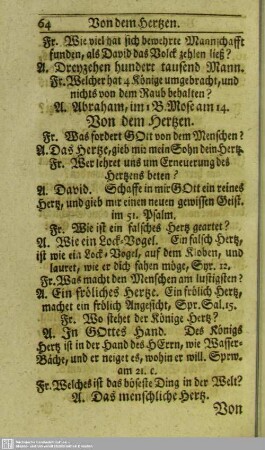 64 Von dem Hertzen.
Fr. Wie viel hat sich bewehrte Mannschafft
funden, als David das Volck zehlen ließ?
A. Dreyzehen hundert tausend Mann.
Fr. Welcher hat 4 Könige umgebracht, und
nichts von dem Raub behalten?
A. Abraham, im 1 B. Mose am 14.
Von dem Hertzen.
Fr. Was fordert GOtt von dem Menschen?
A. Das Hertze, gieb mir mein Sohn dein Hertz.
Fr. Wer lehret uns um Erneuerung des
Hertzens beten?
A. David. Schaffe in mir GOtt ein reines
Hertz, und gieb mir einen neuen gewissen Geist.
im 51. Psalm.
Fr. Wie ist ein falsches Hertz geartet?
A. Wie ein Lock-Vogel. Ein falsch Hertz,
ist wie ein Lock-Vogel, auf dem Kloben, und
lauret, wie er dich fahen möge, Syr. 12.
Fr. Was macht den Menschen am lustigsten?
A. Ein fröliches Hertze. Ein frölich Hertz,
machet ein frölich Angesicht, Spr. Sal. 15.
Fr. Wo stehet der Könige Hertz?
A. In GOttes Hand. Des Königs
Hertz ist in der Hand des HErrn, wie Wasser-
Bäche, und er neiget es, wohin er will. Sprw.
am 21. c.
Fr. Welches ist das böseste Ding in der Welt?
A. Das menschliche Hertz.
Von